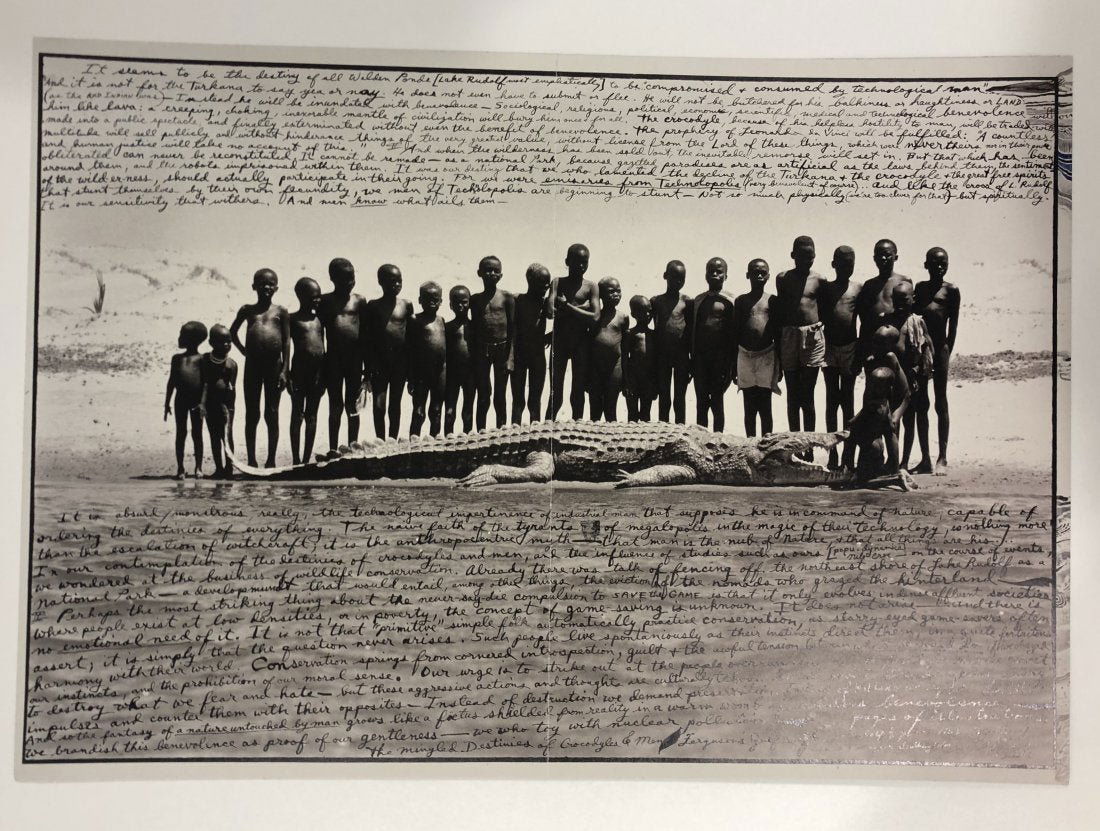 It seems to be the destiny of all Walden Ponds [Lake Rudolf most emphatically] to be "compromised + consumed by technological man"
And it is not for the Turkana to say yea or nay. He does not even have to submit or flee. He will not be butchered for his balkiness or haughtiness or LAND
(as the RED INDIAN was) — Instead he will be inundated with benevolence — Sociological, religious, political, economic, scientific, medical and technological benevolence will
him like lava: a creeping, choking inexorable mantle of civilization will bury him once for all. The crocodyle, because of his helpless hostility to man, will be traded
made into a public spectacle, and finally exterminated without even the benefit of benevolence. The prophecy of Leonardo da Vinci will be fulfilled: "A countless
multitude will sell publicly and without hindrance things of the very greatest value, without license from the Lord of these things, which were never theirs nor in their power
and human justice will take no account of this." And when the wilderness has been sold out, the inevitable remorse will set in. But that which has been
obliterated can never be reconstituted. It cannot be remade — as a national Park, because gazetted paradises are as artificial as the laws behind them, the sentinels
around them, and the robots imprisoned within them. It was our destiny that we who lamented the decline of the Turkana + the crocodyle + the great free spirits
of the wilderness should actually participate in their going. For we were emissaries from Technolopolis (very benevolent of course).. and like the crocs of L. Rudolf
that stunt themselves by their own fecundity, we men of Technolopolis are beginning to stunt — Not so much physically (we're too clever for that) — but spiritually.
It is our sensitivity that withers. And men know what ails them —
It is absurd, monstrous really, the technological impertinence of industrial man that supposes he is in command of nature, capable of
ordering the destinies of everything. The naive faith of the tyrants of megalopolis in the magic of their technology is nothing more
than the escalation of witchcraft; it is the anthropocentric myth — that man is the nub of Nature, + that all things are his.
In our contemplation of the destinies of crocodyles and men, and the influence of studies such as ours on the course of events,
we wondered at the business of wildlife conservation. Already there was talk of fencing off the northeast shore of Lake Rudolf as a
National Park — a development that would entail, among other things, the eviction of the nomads who grazed the hinterland —
Perhaps the most striking thing about the never-say-die compulsion to SAVE the GAME is that it only evolves in dense affluent societies
where people exist at low densities, or in poverty, the concept of game-saving is unknown. It does not arise — and there is
no emotional need of it. It is not that "primitive" simple folk automatically practice conservation, as starry eyed game-savers often
assert; it is simply that the question never arises. Such people live spontaneously as their instincts direct them in a quite
harmony with their world. Conservation springs from cornered introspection, guilt + the awful tension between
our instincts, and the prohibition of our moral sense. Our urge is to strike out at the people
to destroy what we fear and hate — but these aggressive actions and thought are culturally
impulses and counter them with their opposites — Instead of destruction we demand
And so the fantasy of a nature untouched by man grows like a foetus shielded from reality in a warm womb
we brandish this benevolence as proof of our gentleness — we who toy with nuclear
The Mingled Destinies of Crocodyles & Men